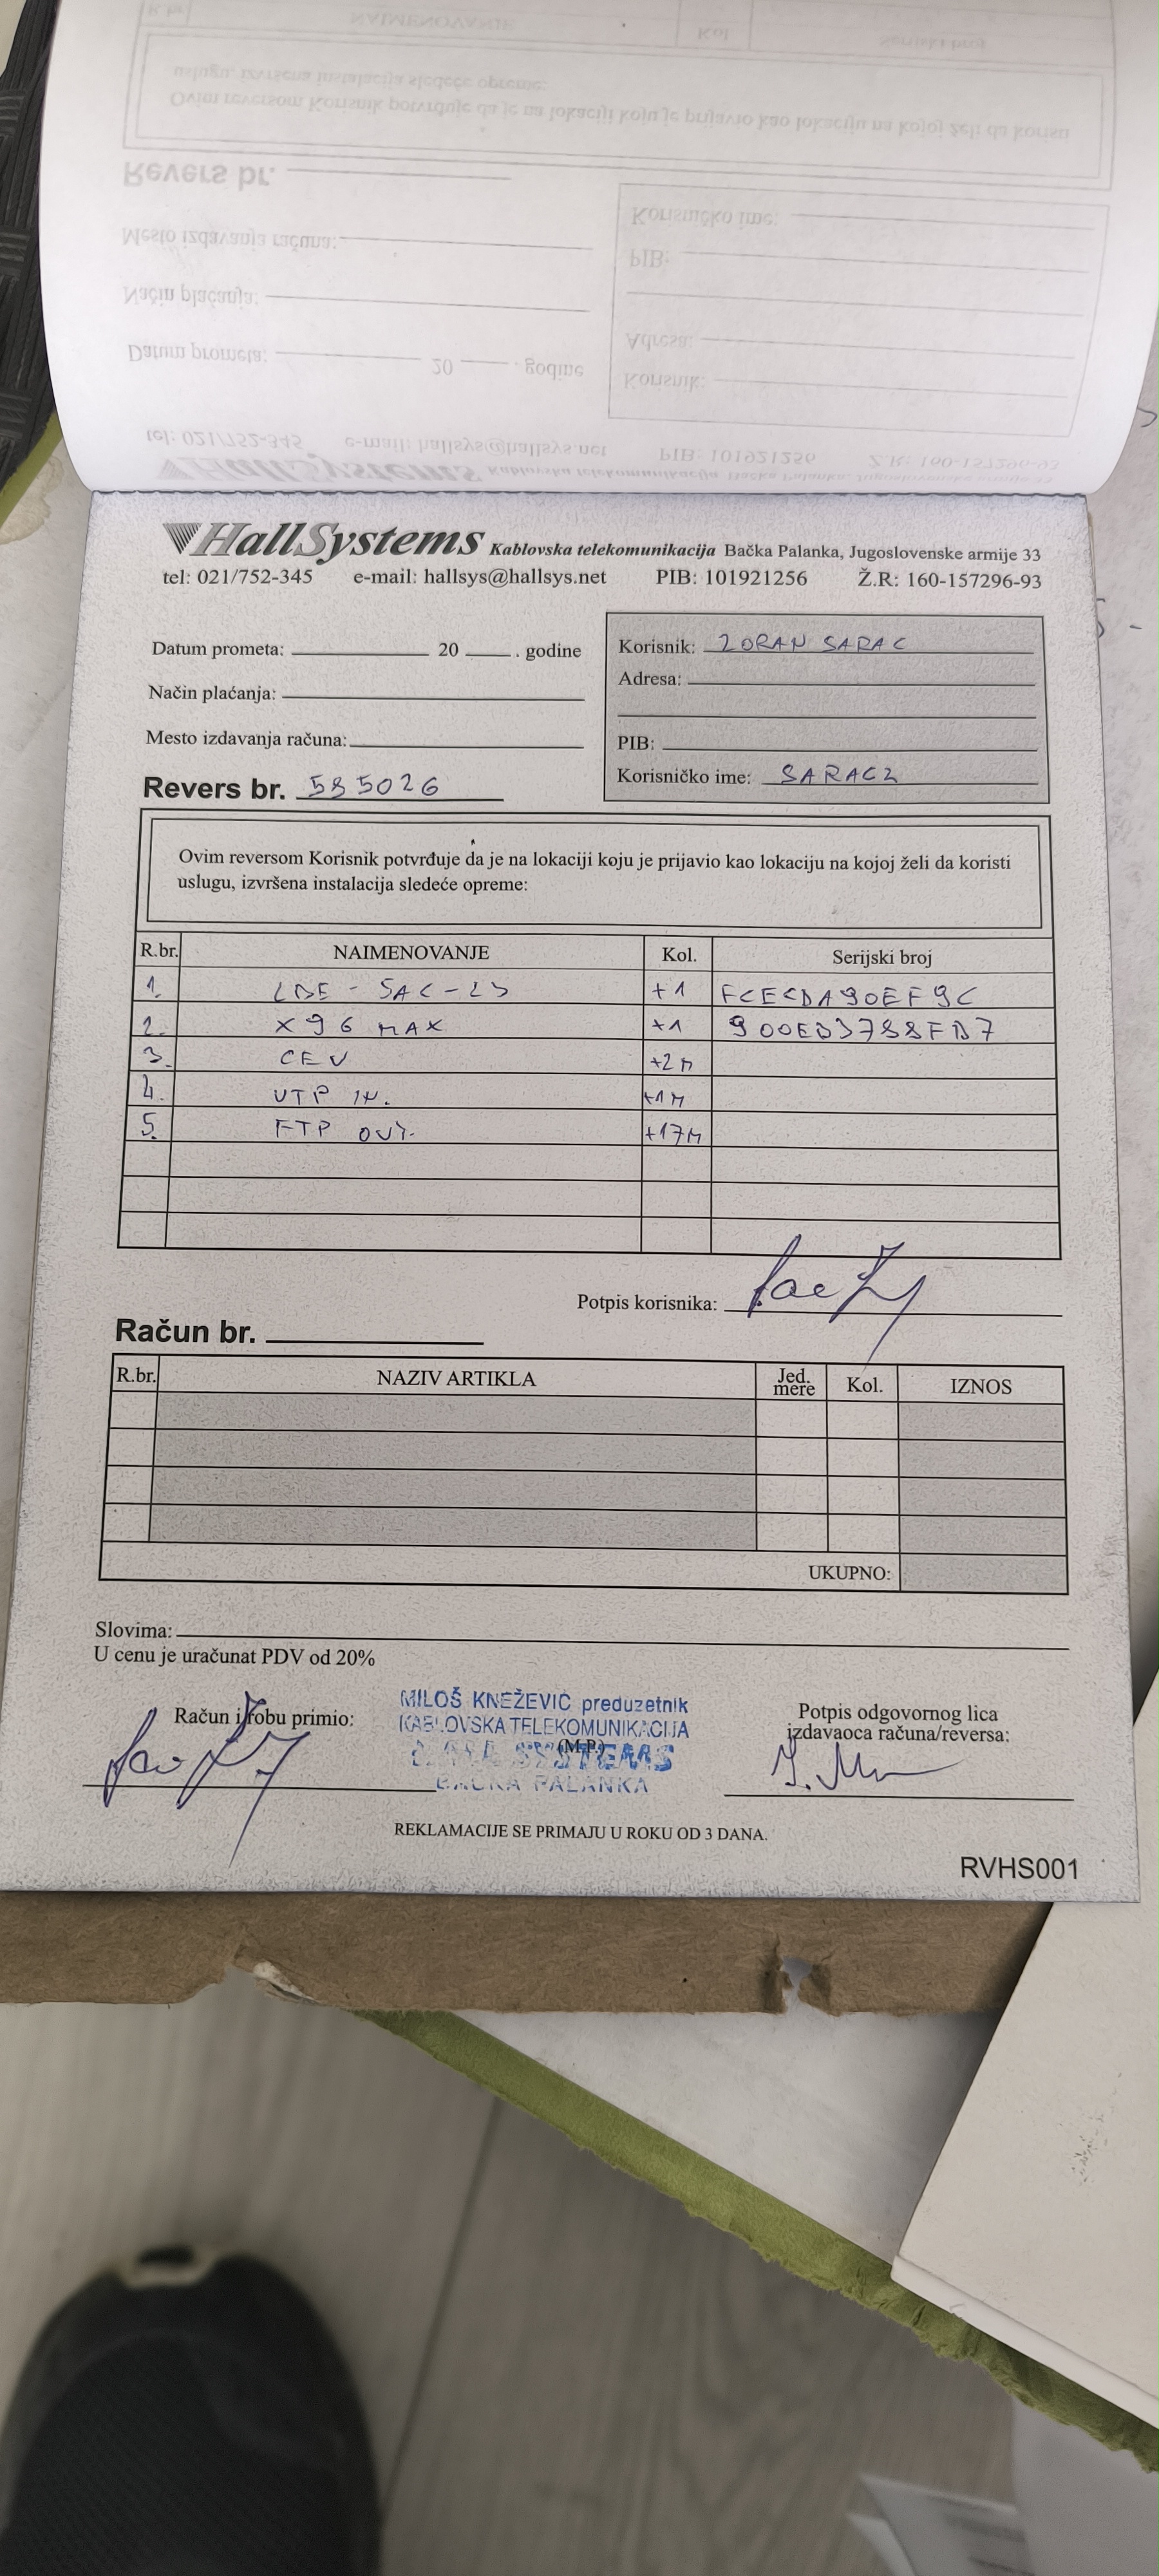 HallSystems Kablovska telekomunikacija Bačka Palanka, Jugoslovenske armije 33
tel: 021/752-345 e-mail: hallsys@hallsys.net PIB: 101921256 Ž.R: 160-157296-93
Datum prometa: 20 . godine
Način plaćanja:
Mesto izdavanja računa:
Revers br. 585026
Korisnik: ZORAN SARAC
Adresa:
PIB:
Korisničko ime: SARACZ
Ovim reversom Korisnik potvrđuje da je na lokaciji koju je prijavio kao lokaciju na kojoj želi da koristi
uslugu, izvršena instalacija sledeće opreme:
R.br. NAIMENOVANJE Kol. Serijski broj
1. LBE - 5AC - 23 +1 FCECDA90EF9C
2. X96 MAX +1 900EB3788FD7
3. CEV +2M
4. UTP IN. +1M
5. FTP OUT. +17M
Potpis korisnika:
Račun br.
R.br. NAZIV ARTIKLA Jed. mere Kol. IZNOS
UKUPNO:
Slovima:
U cenu je uračunat PDV od 20%
Račun i robu primio:
MILOŠ KNEŽEVIĆ preduzetnik
KABLOVSKA TELEKOMUNIKACIJA
(M.P.)
SYSTEMS
BAČKA PALANKA
Potpis odgovornog lica
izdavaoca računa/reversa:
REKLAMACIJE SE PRIMAJU U ROKU OD 3 DANA.
RVHS001